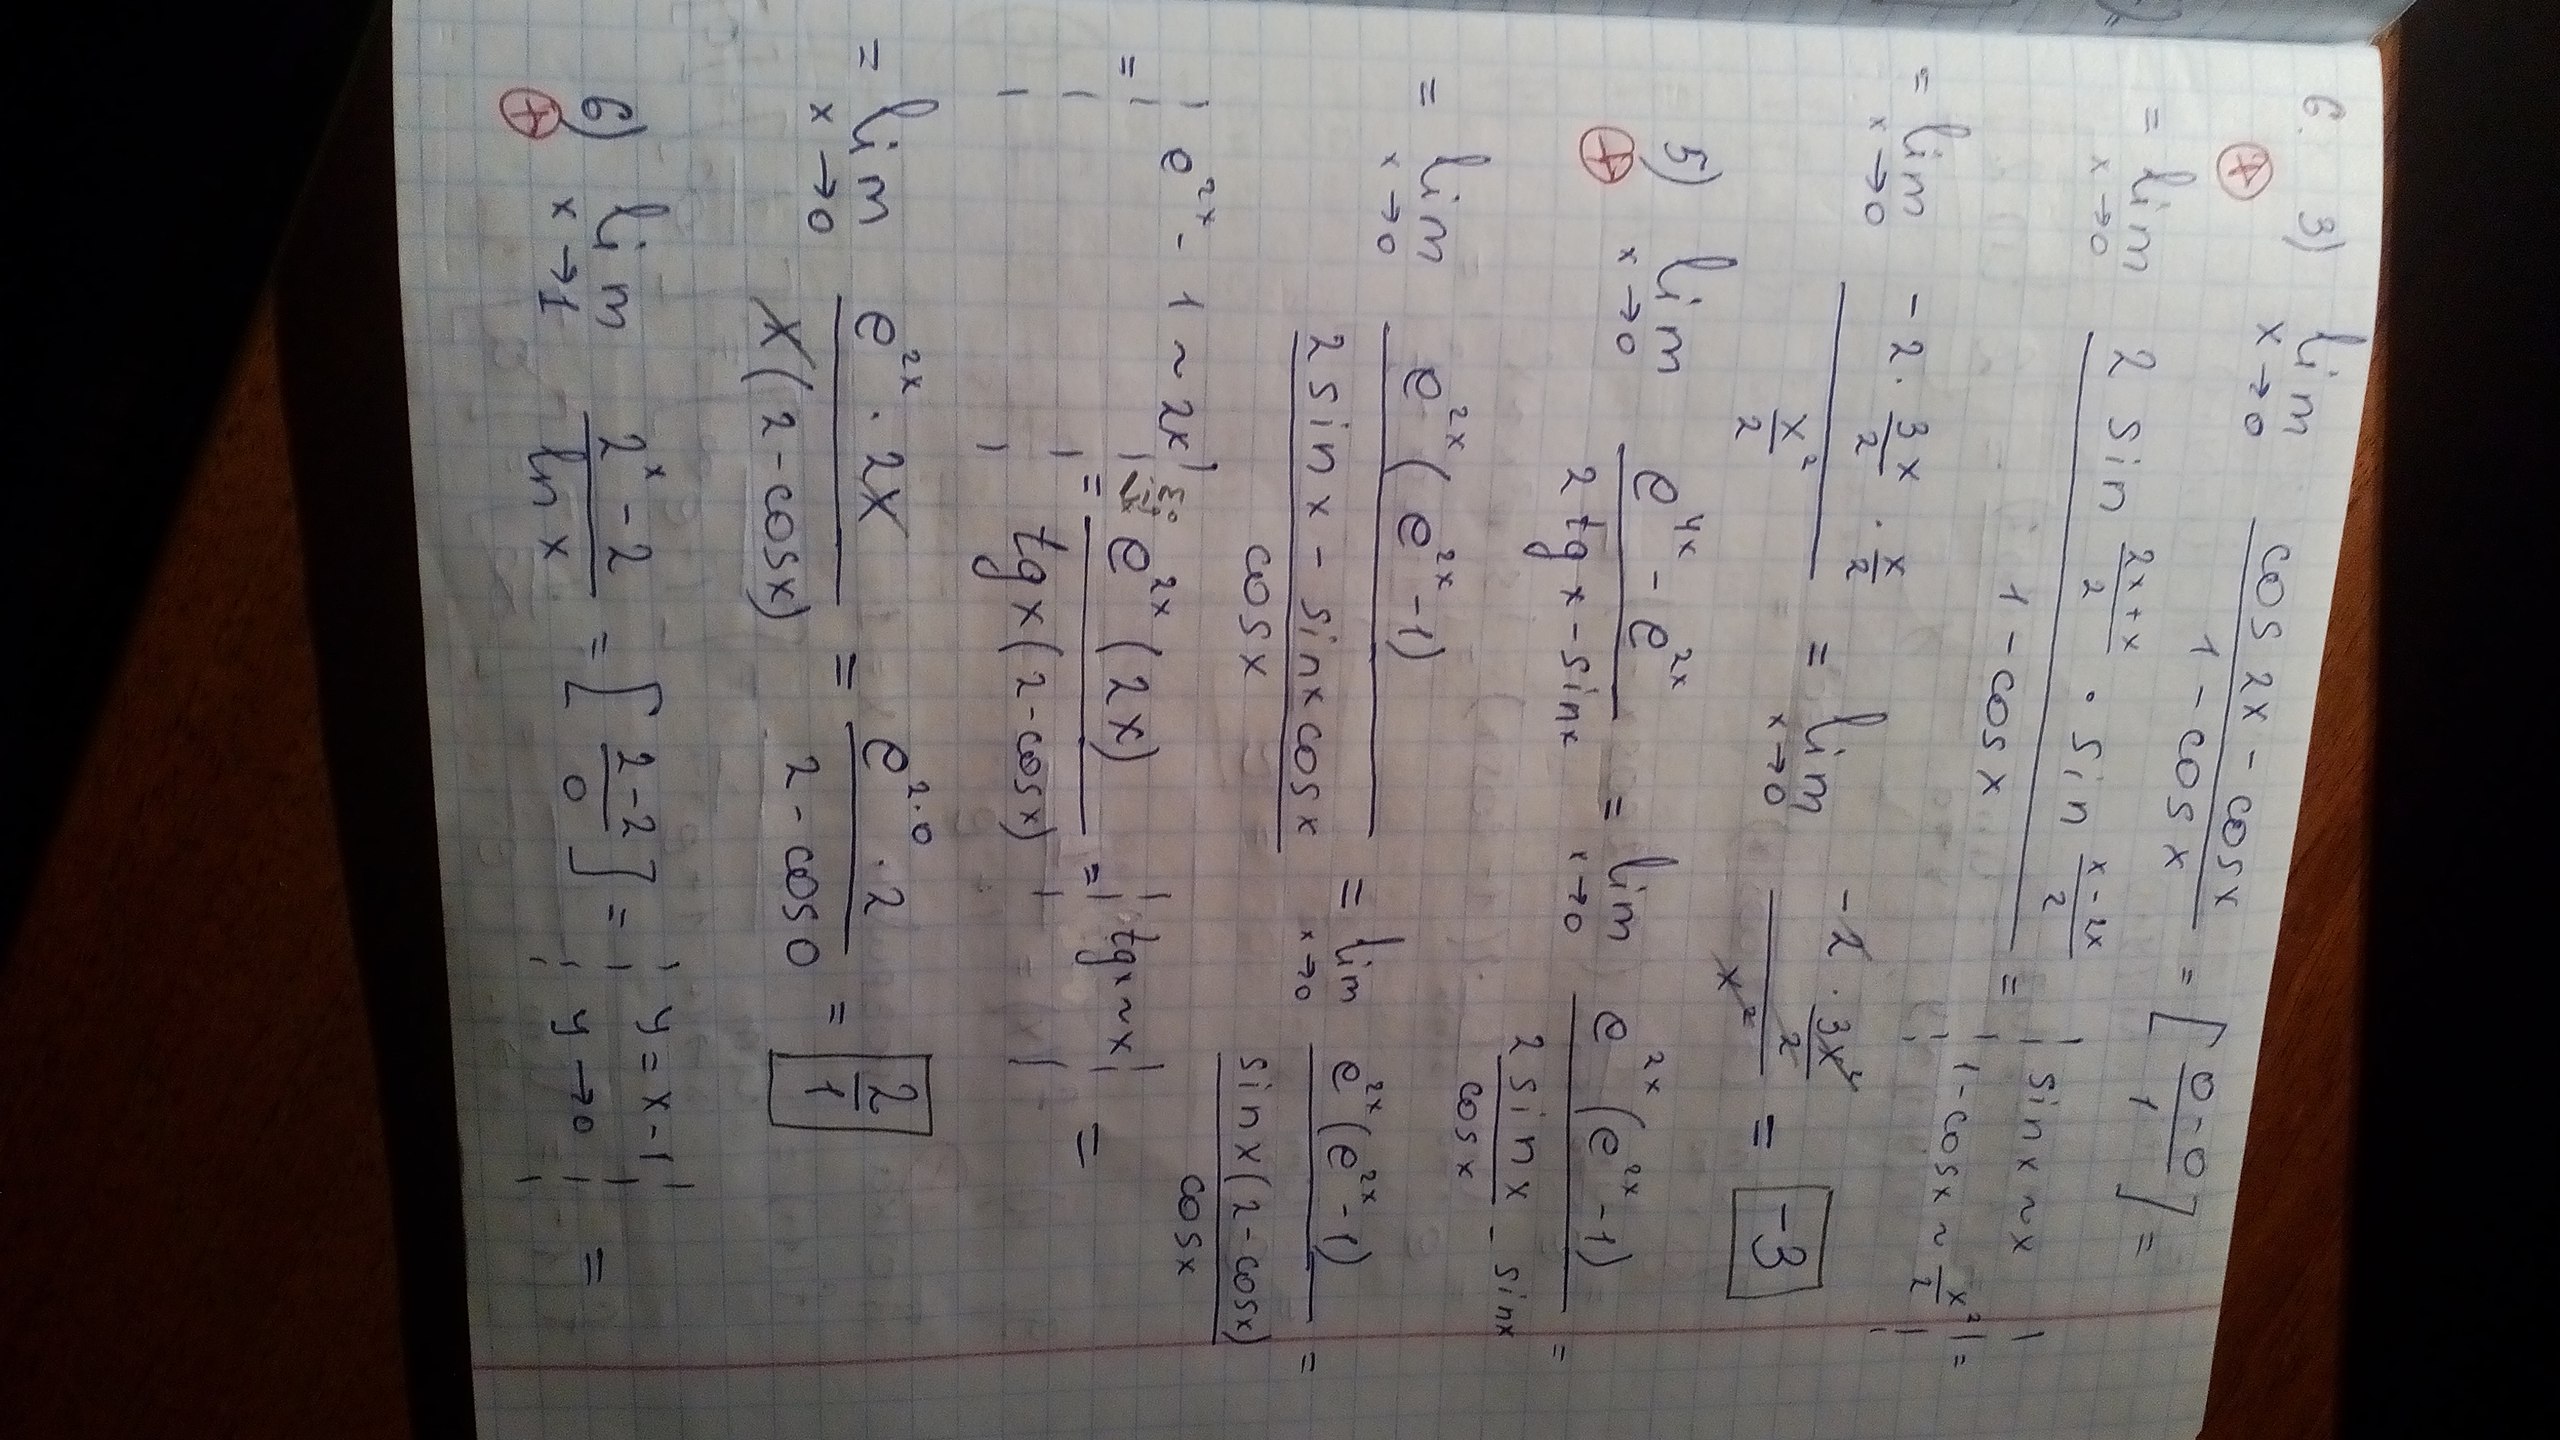 6. 3) lim x→0 (cos 2x - cosx)/(1 - cosx) = [(0-0)/1] =
= lim x→0 (2 sin (2x+x)/2 · sin (x-2x)/2)/(1 - cosx) = | sinx ~ x | 1-cosx ~ x²/2 | =
= lim x→0 (-2 · 3x/2 · x/2)/(x²/2) = lim x→0 (-2 · 3x²/2)/x² = -3
5) lim x→0 (e^4x - e^2x)/(2tgx - sinx) = lim x→0 (e^2x (e^2x - 1))/(2sinx/cosx - sinx) =
= lim x→0 (e^2x (e^2x - 1))/((2sinx - sinxcosx)/cosx) = lim x→0 (e^2x (e^2x - 1))/((sinx(2-cosx))/cosx) =
= | e^2x - 1 ~ 2x | = lim x→0 (e^2x (2x))/(tgx(2-cosx)) = | tgx ~ x | =
= lim x→0 (e^2x · 2x)/(x(2-cosx)) = (e^2·0 · 2)/(2 - cos0) = 2/1
6) lim x→1 (2^x - 2)/(ln x) = [(2-2)/0] = | y = x-1 | y→0 | =